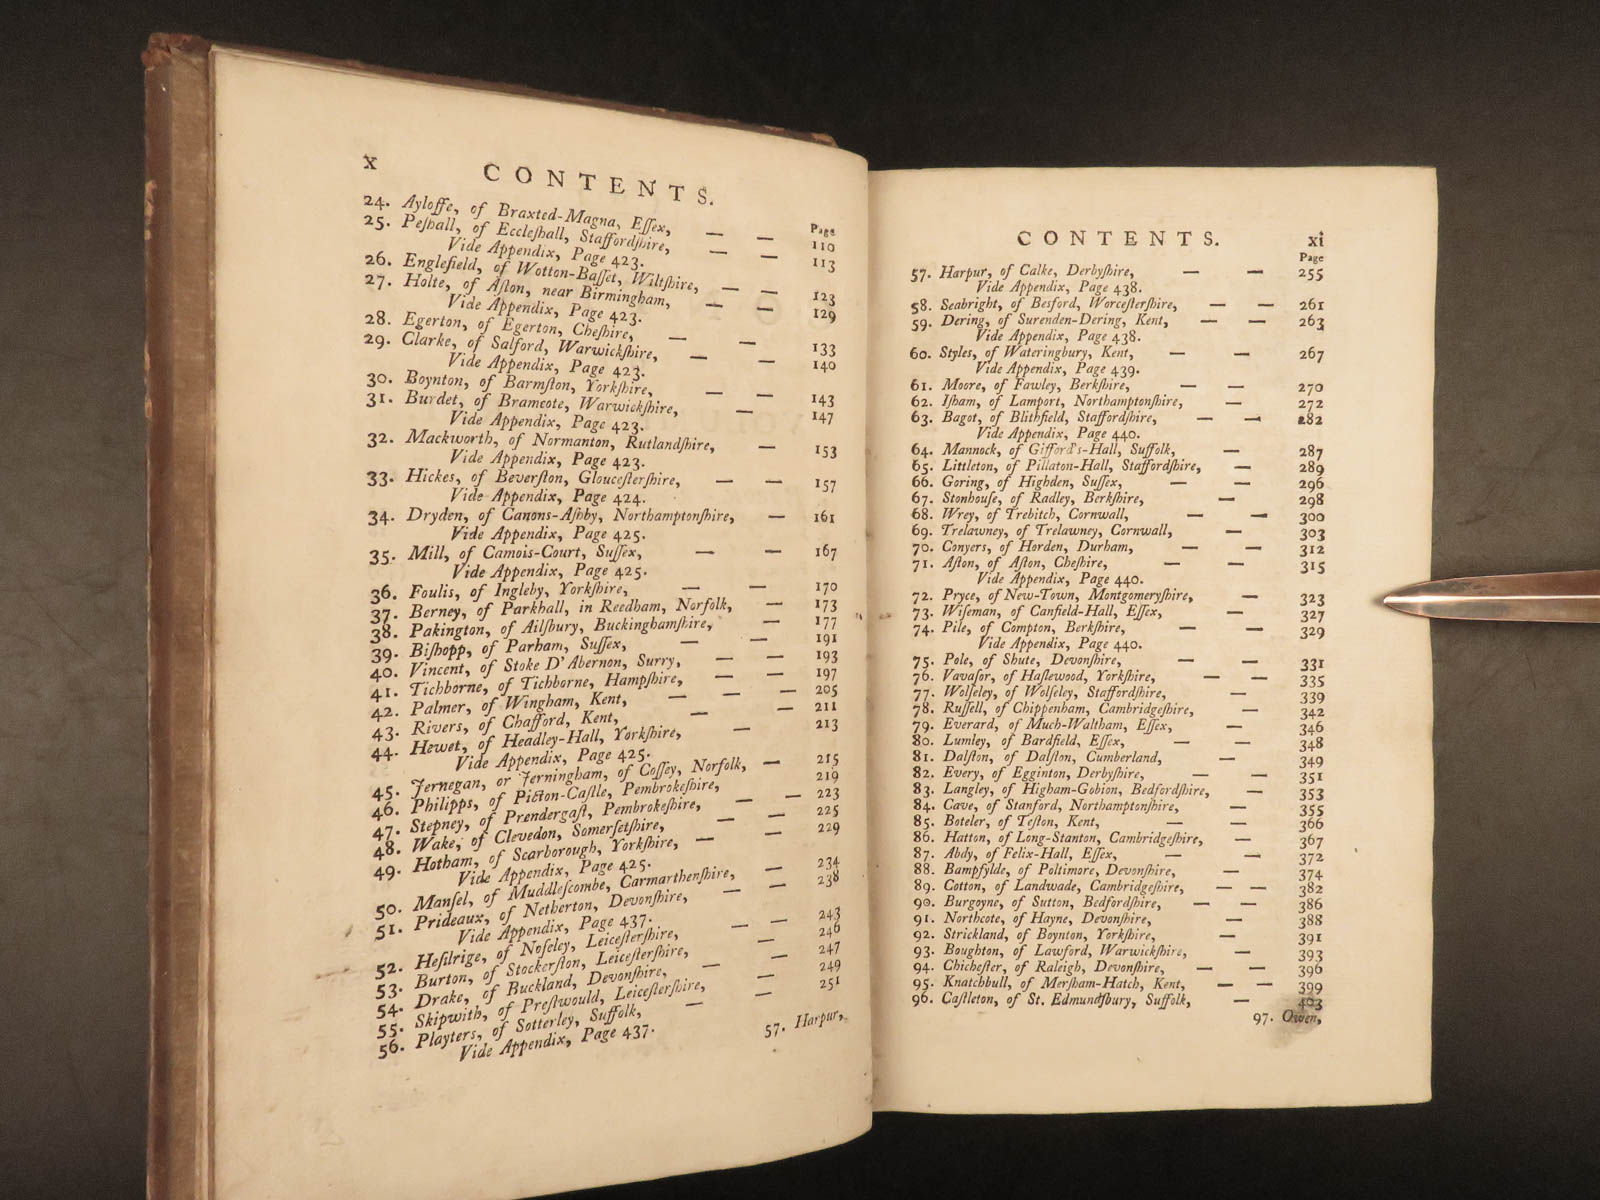 x
CONTENTS.
Page
24. Ayloffe, of Braxted-Magna, Eſſex, — — 110
25. Peſhall, of Eccleſhall, Staffordſhire, — — 113
Vide Appendix, Page 423.
26. Englefield, of Wotton-Baſſet, Wiltſhire, — — 123
27. Holte, of Aſton, near Birmingham, — — 129
Vide Appendix, Page 423.
28. Egerton, of Egerton, Cheſhire, — — 133
29. Clarke, of Salford, Warwickſhire, — — 140
Vide Appendix, Page 423.
30. Boynton, of Barmſton, Yorkſhire, — — 143
31. Burdet, of Bramcote, Warwickſhire, — 147
Vide Appendix, Page 423.
32. Mackworth, of Normanton, Rutlandſhire, — 153
Vide Appendix, Page 423.
33. Hickes, of Beverſton, Glouceſterſhire, — — 157
Vide Appendix, Page 424.
34. Dryden, of Canons-Aſhby, Northamptonſhire, — 161
Vide Appendix, Page 425.
35. Mill, of Camois-Court, Suſſex, — — 167
Vide Appendix, Page 425.
36. Foulis, of Ingleby, Yorkſhire, — — 170
37. Berney, of Parkhall, in Reedham, Norfolk, — 173
38. Pakington, of Ailſbury, Buckinghamſhire, — 177
39. Biſhopp, of Parham, Suſſex, — — 191
40. Vincent, of Stoke D'Abernon, Surry, — — 193
41. Tichborne, of Tichborne, Hampſhire, — — 197
42. Palmer, of Wingham, Kent, — — — 205
43. Rivers, of Chafford, Kent, — — 211
44. Hewet, of Headley-Hall, Yorkſhire, — 213
Vide Appendix, Page 425.
45. Jernegan, or Jerningham, of Coſſey, Norfolk, — 215
46. Philipps, of Picton-Caſtle, Pembrokeſhire, 219
47. Stepney, of Prendergaſt, Pembrokeſhire, — — 223
48. Wake, of Clevedon, Somerſetſhire, — — 225
49. Hotham, of Scarborough, Yorkſhire, — — 229
Vide Appendix, Page 425.
50. Manſel, of Muddleſcombe, Carmarthenſhire, — 234
51. Prideaux, of Netherton, Devonſhire, — — 238
Vide Appendix, Page 437.
52. Heſilrige, of Noſeley, Leiceſterſhire, — — 243
53. Burton, of Stockerſton, Leiceſterſhire, — 246
54. Drake, of Buckland, Devonſhire, — — 247
55. Skipwith, of Preſtwould, Leiceſterſhire, — 249
56. Playters, of Sotterley, Suffolk, — — 251
Vide Appendix, Page 437.
57. Harpur,
CONTENTS.
xi
Page
57. Harpur, of Calke, Derbyſhire, — — 255
Vide Appendix, Page 438.
58. Seabright, of Besford, Worceſterſhire, — — 261
59. Dering, of Surenden-Dering, Kent, — — 263
Vide Appendix, Page 438.
60. Styles, of Wateringbury, Kent, — — 267
Vide Appendix, Page 439.
61. Moore, of Fawley, Berkſhire, — — 270
62. Iſham, of Lamport, Northamptonſhire, — 272
63. Bagot, of Blithfield, Staffordſhire, — — 282
Vide Appendix, Page 440.
64. Mannock, of Gifford's-Hall, Suffolk, — 287
65. Littleton, of Pillaton-Hall, Staffordſhire, — 289
66. Goring, of Highden, Suſſex, — — 296
67. Stonhouſe, of Radley, Berkſhire, — 298
68. Wrey, of Trebitch, Cornwall, — — 300
69. Trelawney, of Trelawney, Cornwall, — 303
70. Conyers, of Horden, Durham, — — 312
71. Aſton, of Aſton, Cheſhire, — — 315
Vide Appendix, Page 440.
72. Pryce, of New-Town, Montgomeryſhire, — 323
73. Wiſeman, of Canfield-Hall, Eſſex, — 327
74. Pile, of Compton, Berkſhire, — — 329
Vide Appendix, Page 440.
75. Pole, of Shute, Devonſhire, — — 331
76. Vavaſor, of Haſlewood, Yorkſhire, — — 335
77. Wolſeley, of Wolſeley, Staffordſhire, — 339
78. Ruſſell, of Chippenham, Cambridgeſhire, — 342
79. Everard, of Much-Waltham, Eſſex, — 346
80. Lumley, of Bardfield, Eſſex, — — 348
81. Dalſton, of Dalſton, Cumberland, — 349
82. Every, of Egginton, Derbyſhire, — — 351
83. Langley, of Higham-Gobion, Bedfordſhire, — 353
84. Cave, of Stanford, Northamptonſhire, — 355
85. Boteler, of Teſton, Kent, — — 366
86. Hatton, of Long-Stanton, Cambridgeſhire, — 367
87. Abdy, of Felix-Hall, Eſſex, — — 372
88. Bampfylde, of Poltimore, Devonſhire, — 374
89. Cotton, of Landwade, Cambridgeſhire, — — 382
90. Burgoyne, of Sutton, Bedfordſhire, — — 386
91. Northcote, of Hayne, Devonſhire, — 388
92. Strickland, of Boynton, Yorkſhire, — 391
93. Boughton, of Lawford, Warwickſhire, — 393
94. Chicheſter, of Raleigh, Devonſhire, — — 396
95. Knatchbull, of Merſham-Hatch, Kent, — — 399
96. Caſtleton, of St. Edmundſbury, Suffolk, — 403
97. Owen,